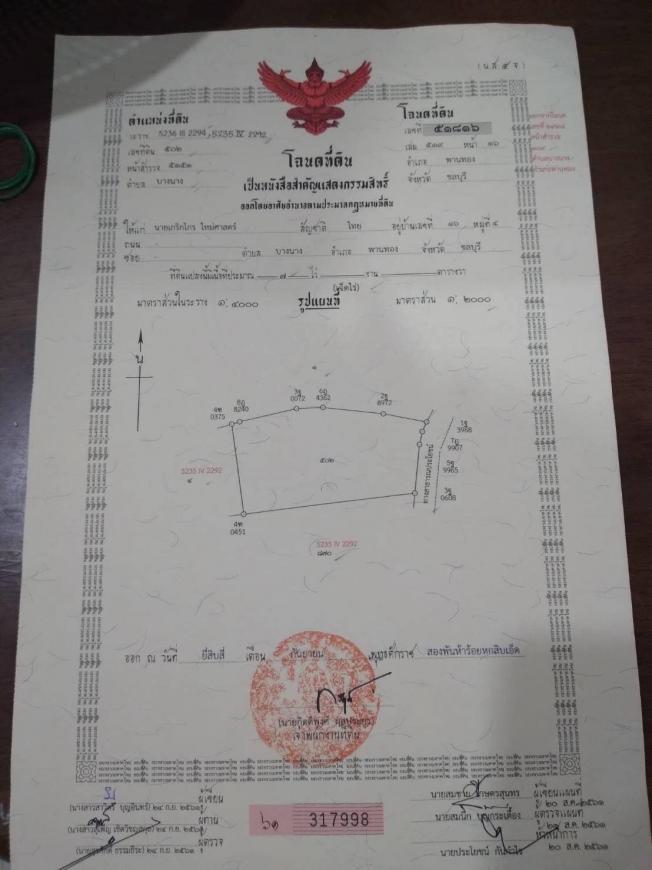 (น.ส. ๔ จ.)
ตำแหน่งที่ดิน
ระวาง 5236 III 2294, 5235 IV 2292
เลขที่ดิน ๕๐๒
หน้าสำรวจ ๕๑๕๑
ตำบล บางนาง
โฉนดที่ดิน
เลขที่ ๕๑๘๑๖
เล่ม ๕๑๙ หน้า ๑๖
อำเภอ พานทอง
จังหวัด ชลบุรี
โฉนดที่ดิน
เป็นหนังสือสำคัญแสดงกรรมสิทธิ์
ออกโดยอาศัยอำนาจตามประมวลกฎหมายที่ดิน
ให้แก่ นายเกริกไกร ใหม่ศาสตร์ สัญชาติ ไทย อยู่บ้านเลขที่ ๑๖ หมู่ที่ ๔
ถนน
ซอย - ตำบล บางนาง อำเภอ พานทอง จังหวัด ชลบุรี
ที่ดินแปลงนี้มีเนื้อที่ประมาณ ๗ ไร่ งาน ตารางวา
(เจ็ดไร่)
มาตราส่วนในระวาง ๑: ๔๐๐๐ รูปแผนที่ มาตราส่วน ๑: ๒๐๐๐
น
4ฑ
0375
8ฎ
8240
3ฐ
0072
6ฎ
4362
2ฐ
8972
1ฐ
3988
7ฎ
9907
5ฐ
9985
3ฐ
0608
4ฑ
0451
๕๐๒
ทางสาธารณประโยชน์
5235 IV 2292
๙
5235 IV 2292
๘๗๐
ออก ณ วันที่ ยี่สิบสี่ เดือน กันยายน พุทธศักราช สองพันห้าร้อยหกสิบเอ็ด
เจ้าพนักงานที่ดิน
๒๔ ก.ย. ๒๕๖๑ ผู้เขียน
๒๔ ก.ย. ๒๕๖๑ ผู้ทาน
๒๔ ก.ย. ๒๕๖๑ ผู้ตรวจ
๖๑ 317998
ผู้เขียนแผนที่
๒๐ ส.ค. ๒๕๖๑
ผู้ตรวจแผนที่
๒๐ ส.ค. ๒๕๖๑
๒๐ ส.ค. ๒๕๖๑